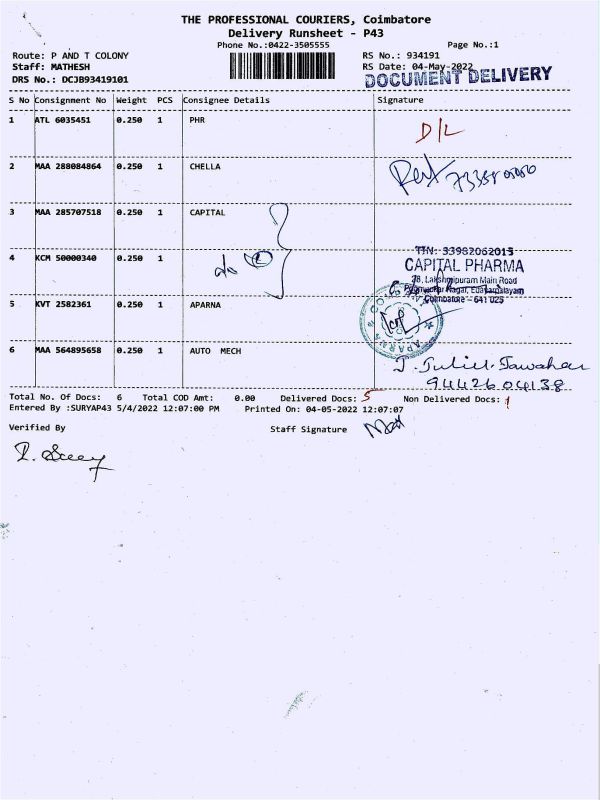 THE PROFESSIONAL COURIERS, Coimbatore
Delivery Runsheet - P43
Phone No.:0422-3505555
Page No.:1
Route: P AND T COLONY
RS No.: 934191
Staff: MATHESH
RS Date: 04-May-2022
DRS No.: DCJB93419101
DOCUMENT DELIVERY
S No Consignment No Weight PCS Consignee Details Signature
1 ATL 6035451 0.250 1 PHR D/L
2 MAA 288084864 0.250 1 CHELLA
3 MAA 285707518 0.250 1 CAPITAL
4 KCM 50000340 0.250 1
TIN: 33982062015
CAPITAL PHARMA
28, Lakshmipuram Main Road
Nagar, Edayarpalayam
Coimbatore - 641 025
5 KVT 2582361 0.250 1 APARNA
APARNA
6 MAA 564895658 0.250 1 AUTO MECH
9442604138
Total No. Of Docs: 6 Total COD Amt: 0.00 Delivered Docs: 5 Non Delivered Docs: 1
Entered By :SURYAP43 5/4/2022 12:07:00 PM Printed On: 04-05-2022 12:07:07
Verified By Staff Signature